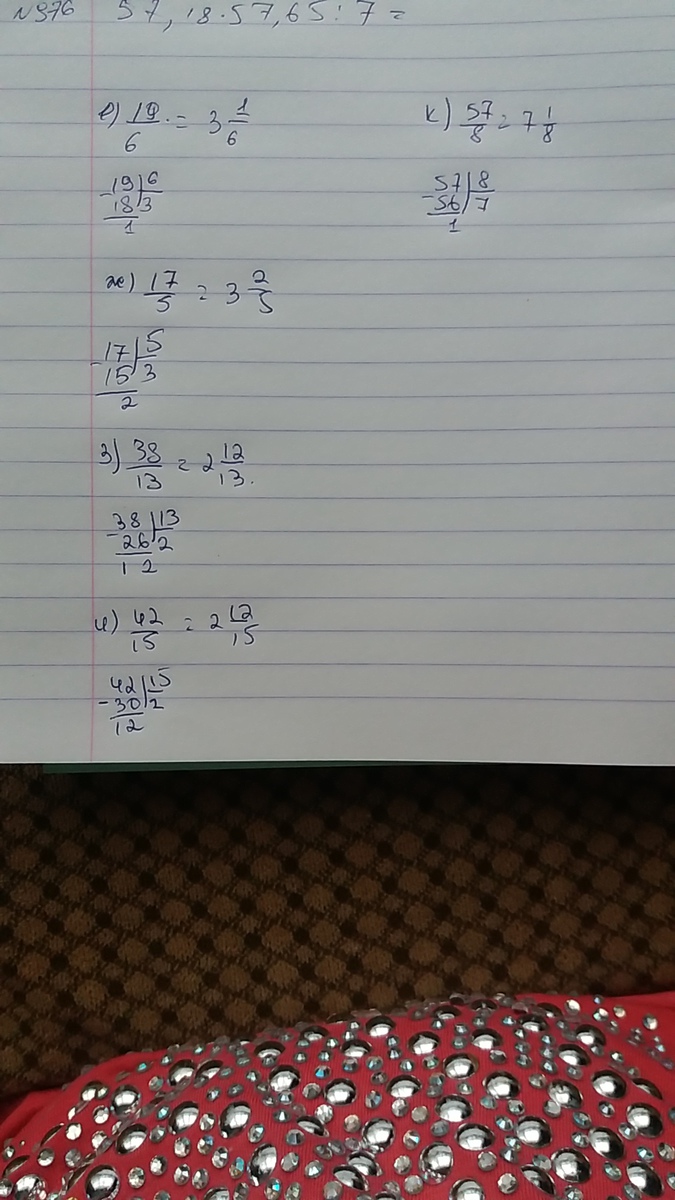 N376 57,18·57,65:7=
е) 19/6 = 3 1/6
-19|6
18|3
1
ж) 17/5 = 3 2/5
-17|5
15|3
2
з) 38/13 = 2 12/13.
-38|13
26|2
12
и) 42/15 = 2 12/15
-42|15
30|2
12
к) 57/8 = 7 1/8
-57|8
56|7
1